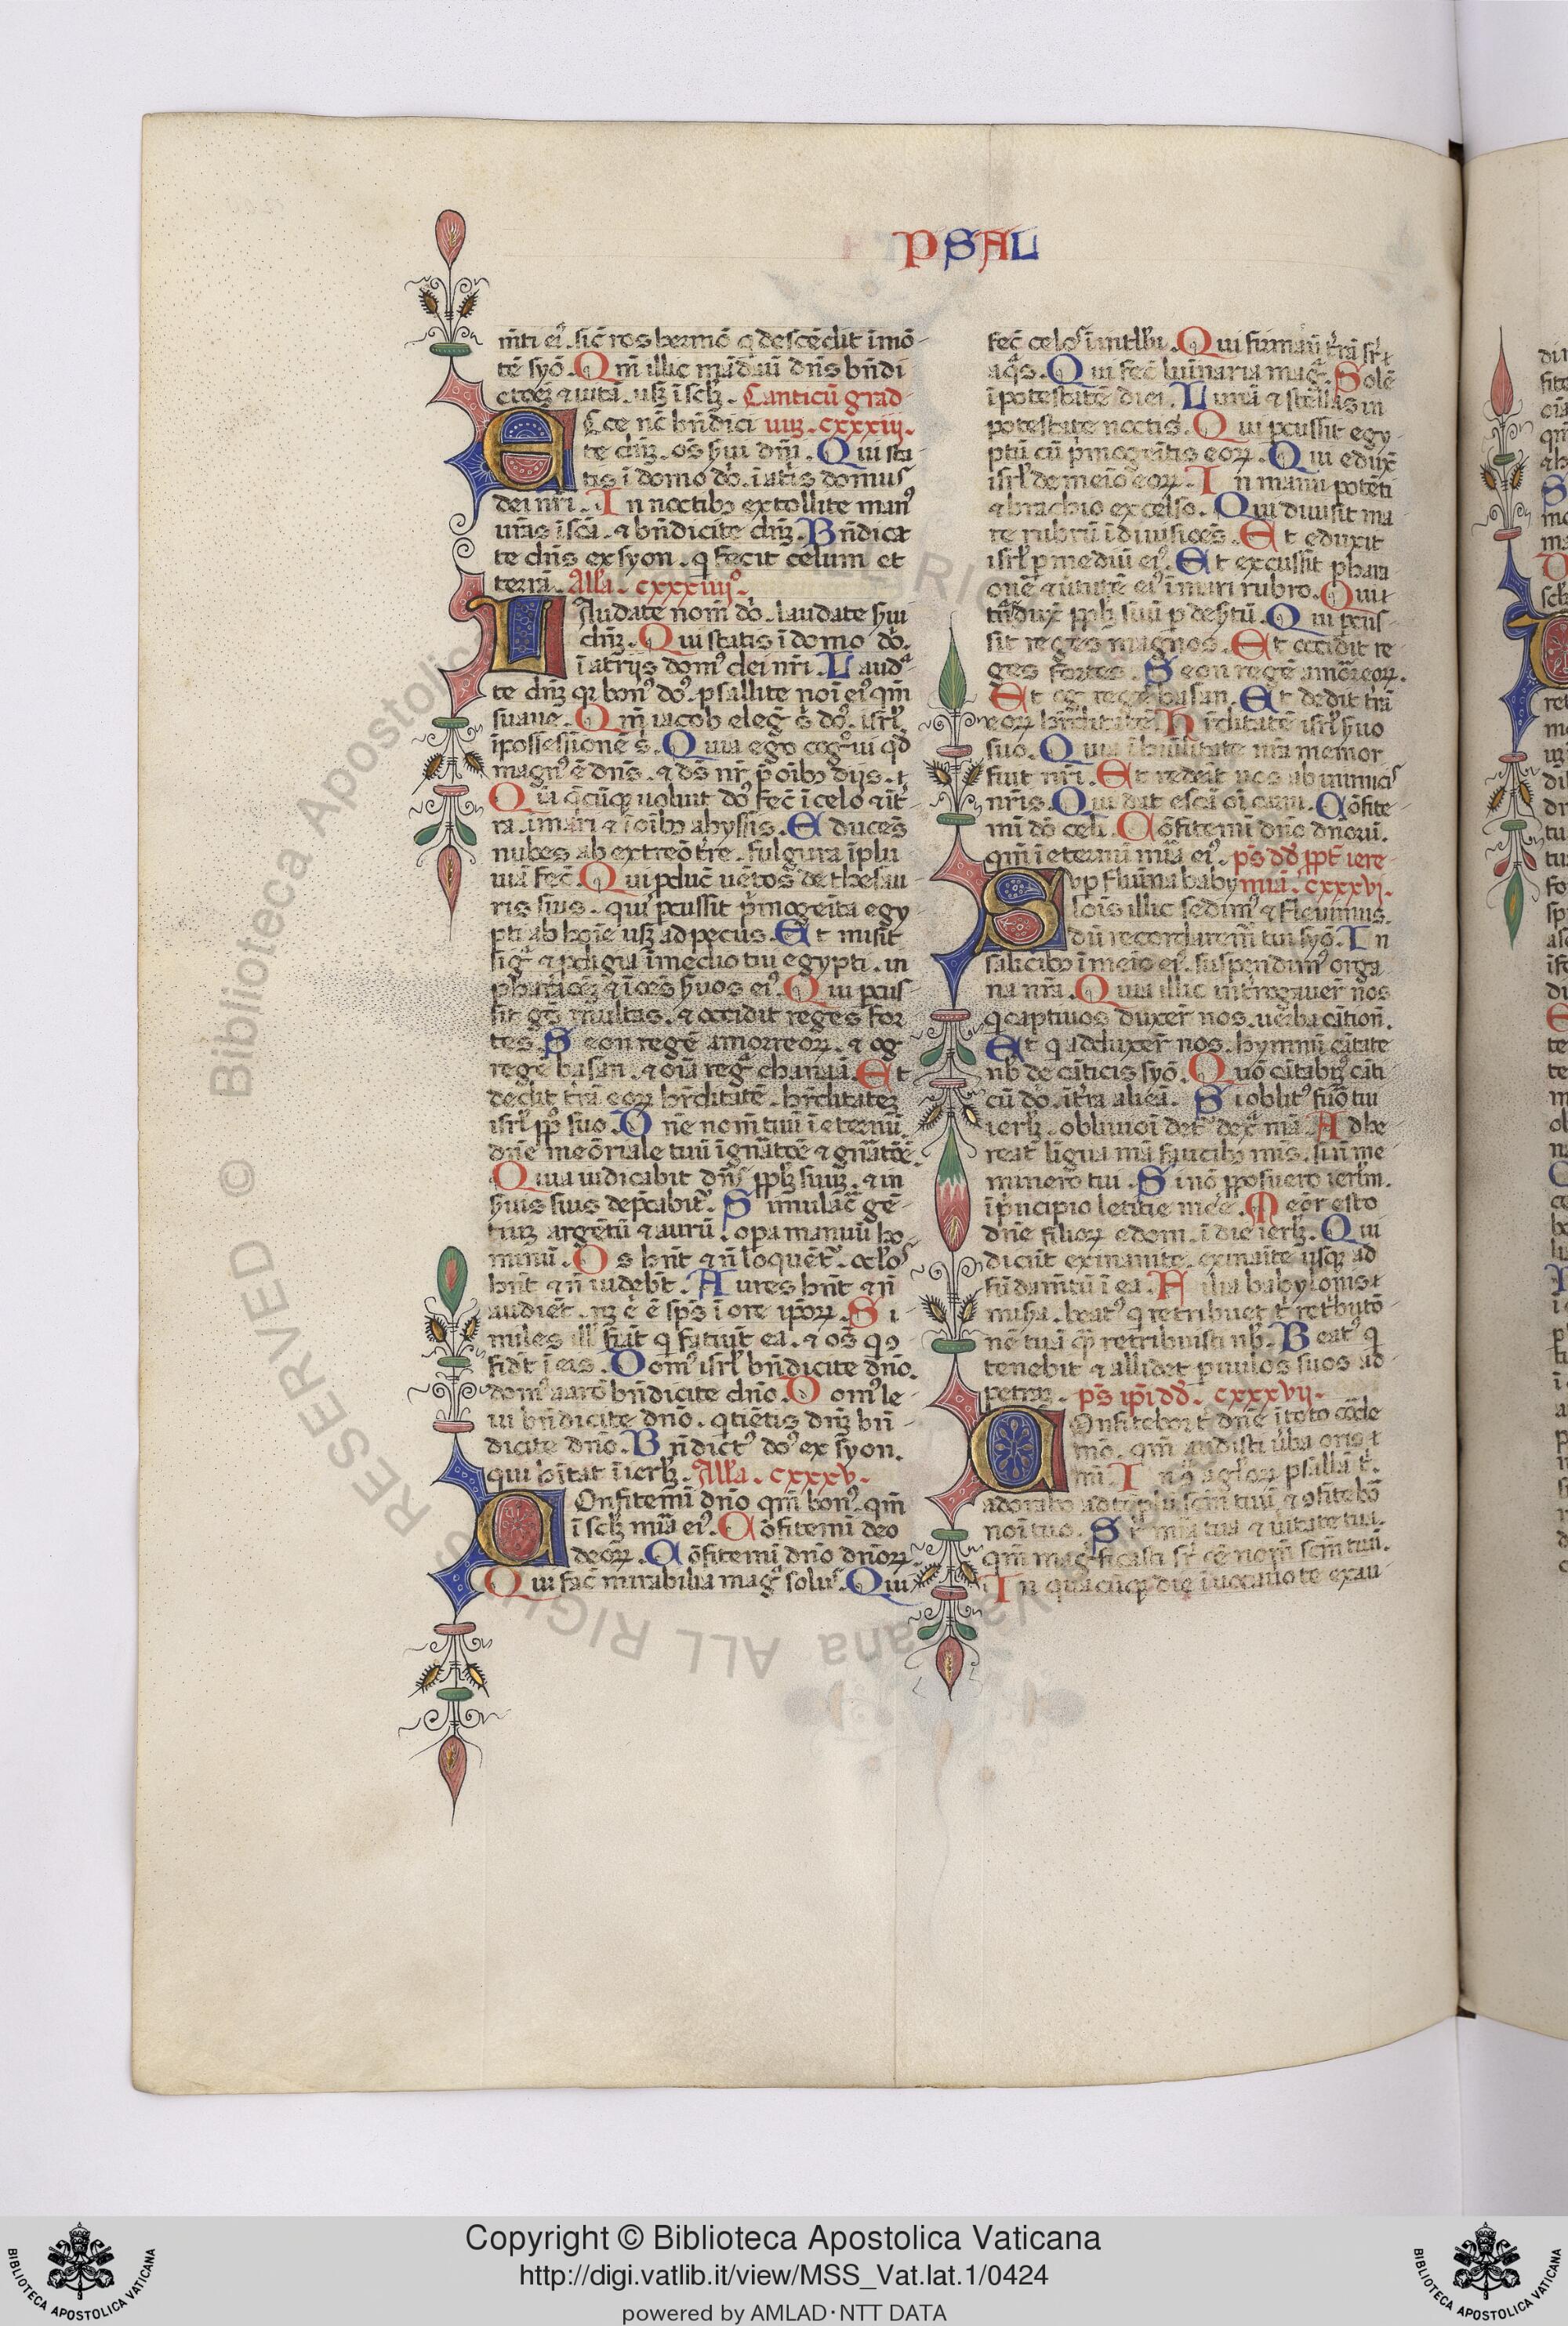 PSAL
m̄ti ei᷒. sic̄ ros hermō q̄ descēdit ī mō-
tē syō. Qm̄ illic mādaū dn̄s bn̄di
ctōeʒ & uitā. usʒ ī sclʒ. Canticū grad-
Ecce nc̄ bn̄dici uiʒ. cxxxiij.
te dn̄ʒ. om̄s s̄ui dm̄i. Qui sta
tis ī domo dō. ī atīis domus
dei nr̄i. In noctibꝫ extollite man᷒
ur̄as ī scā. & bn̄dicite dn̄ʒ. Bn̄dicat
te dn̄s ex syon. q̄ fecit celum et
terrā. Alla. cxxxiiij.
Laudate nom̄ dō. laudate s̄ui
dn̄ʒ. Qui statis ī domo dō.
ī atrijs dom᷒ dei nr̄i. Lauda
te dn̄ʒ qꝛ bon᷒ dō᷒. psallite noī ei᷒ qm̄
suaue. Qm̄ iacob eleḡ s̄ dō᷒. isrl̄
ī possessionē s̄. Quia ego coḡui qd̄
magn᷒ ē dn̄s. & ds̄ nr̄ p̄ oībꝫ dijs.
Oīa q̄cūqꝫ uoluit dō᷒ fec̄ ī celo & ī t̄r
ra. ī mari & ī oībꝫ abyssis. Educēs
nubes ab extreō t̄re. fulgura ī plu
uiā fec̄. Qui pduc̄ uētos de thesau
ris suis. qui pcussit p̄mogēita egy
pti ab hoīe usʒ ad pecus. Et misit
siḡ & pdigia ī medio tui egypti. in
pharaōeʒ & ī oēs s̄uos ei᷒. Qui pcus-
sit gēs multas. & occidit reges for
tes. Seon regē amorreoꝝ. & og
regē basan. & oīa reḡ chanaā. Et
dedit t̄rā eoꝝ hr̄ditatē. hr̄ditateʒ
isrl̄ pp̄lo suo. Dn̄e nom̄ tuū ī eternū.
dn̄e meōriale tuū ī gn̄atōē & gn̄atōē.
Quia iudicabit dn̄s pplʒ suuʒ. & in
s̄uis suis dep̄cabit̄. Simulac̄ gē-
tiuʒ argētū & aurū. opa manuū ho-
minū. Os hn̄t & n̄ loquēt̄. oc̄los
hn̄t & n̄ uidebn̄t. Aures hn̄t & n̄
audiēt. nʒ ē ē sps̄ ī ore ip̄oꝝ. Si-
miles ill̄ fiāt q̄ faciūt ea. & om̄s q ꝯ
fidt̄ ī eis. Dom᷒ isrl̄ bn̄dicite dn̄o.
dom᷒ aarō bn̄dicite dn̄o. Dom᷒ le-
ui bn̄dicite dn̄o. q timētis dn̄ʒ bn̄-
dicite dn̄o. Bn̄dict᷒ dō᷒ ex syon.
qui hītat ī ierlʒ. Alla. cxxxv.
Confitemī dn̄o qm̄ bon᷒. qm̄
ī sclʒ mīa ei᷒. Cōfitemī deo
deoꝝ. Cōfitemī dn̄o dn̄oꝝ.
Qui fac̄ mirabilia maḡ solus. Qui
fec̄ celos ī intllū. Qui firmaū t̄rā sr̄
aq̄s. Qui fec̄ lumīaria maḡ. Solē
ī potestatē diei. Lunā & stellas in
potestate noctis. Qui pcussit egy-
ptū cū p̄mogēitis eoꝝ. Qui eduxit
isrl̄ de meīo eoꝝ. In manu potēti
& brachio excelso. Qui diuisit ma
re rubrū ī diuisioēs. Et eduxit
isrl̄ p mediū ei᷒. Et excussit phara
onē & uirtutē ei᷒ ī mari rubro. Qui
trāduxit pplʒ suū p desertū. Qui pcus-
sit reges magnos. Et occidit re
ges fortes. Seon regē amoreoꝝ.
Et og regē basan. Et dedit t̄rā
eoꝝ hr̄ditatē. Hr̄ditatē isrl̄ s̄uo
suo. Quia ī huīlitate nr̄a memor
fuit nr̄i. Et redeīt nos ab inimicis
nr̄is. Qui dat escā oī carni. Cōfite-
mī dō celi. Cōfitemī dn̄o dnōrū.
qm̄ ī eternū mīa ei᷒. ps̄ dd̄ ppt̄ iere
Sup flumīa baby mīā. cxxxvi.
loīs illic sedim᷒ & fleuimus.
dū recordaremr̄ tui syō. In
salicibꝫ ī meīo ei᷒. suspendim᷒ orga
na nr̄a. Quia illic int̄rogauer̄ nos
q captiuos duxer̄ nos. uerba cātion̄.
Et q adduxer̄ nos. hymnū cātate
nb̄ de cāticis syō. Quō cātabiʒ cāti
cū dō. ī t̄ra aliēa. Si oblit᷒ fuō tui
ierlʒ. obliuioī det̄ dex̄ mā. Adhe
reat līgua mā faucibꝫ mīs. si n̄ me
minero tui. Si nō pposuero ierlm̄.
ī p̄ncipio letitie mee. Meōr esto
dn̄e filioꝝ edom. ī die ierlʒ. Qui
dicūt exinanite. exinaīte usqꝫ ad
fūdam̄tū ī ea. Filia babylonis
misa. beat᷒ q retribuet t̄ retbutō-
nē tuā quā retribuisti nb̄. Beat᷒ q
tenebit & allidet puulos suos ad
petraʒ. ps̄ ip̄i dd̄. cxxxvij.
Confitebor t̄ dn̄e ī toto corde
mō. qm̄ audisti ūba oris
mī. In aglōꝝ psallā t̄.
adorabo ad tēplū scm̄ tuū. & ꝯfitebō
noī tuo. Sr̄ mīa tua & ūitate tua.
qm̄ mag̅ficasti sr̄ oē nom̄ scm̄ tuū.
In quacūqꝫ die īuocauo te exau
Copyright © Biblioteca Apostolica Vaticana
http://digi.vatlib.it/view/MSS_Vat.lat.1/0424
powered by AMLAD·NTT DATA
BIBLIOTECA APOSTOLICA VATICANA
BIBLIOTECA APOSTOLICA VATICANA
© Biblioteca Apostolica Vaticana ALL RIGHTS RESERVED